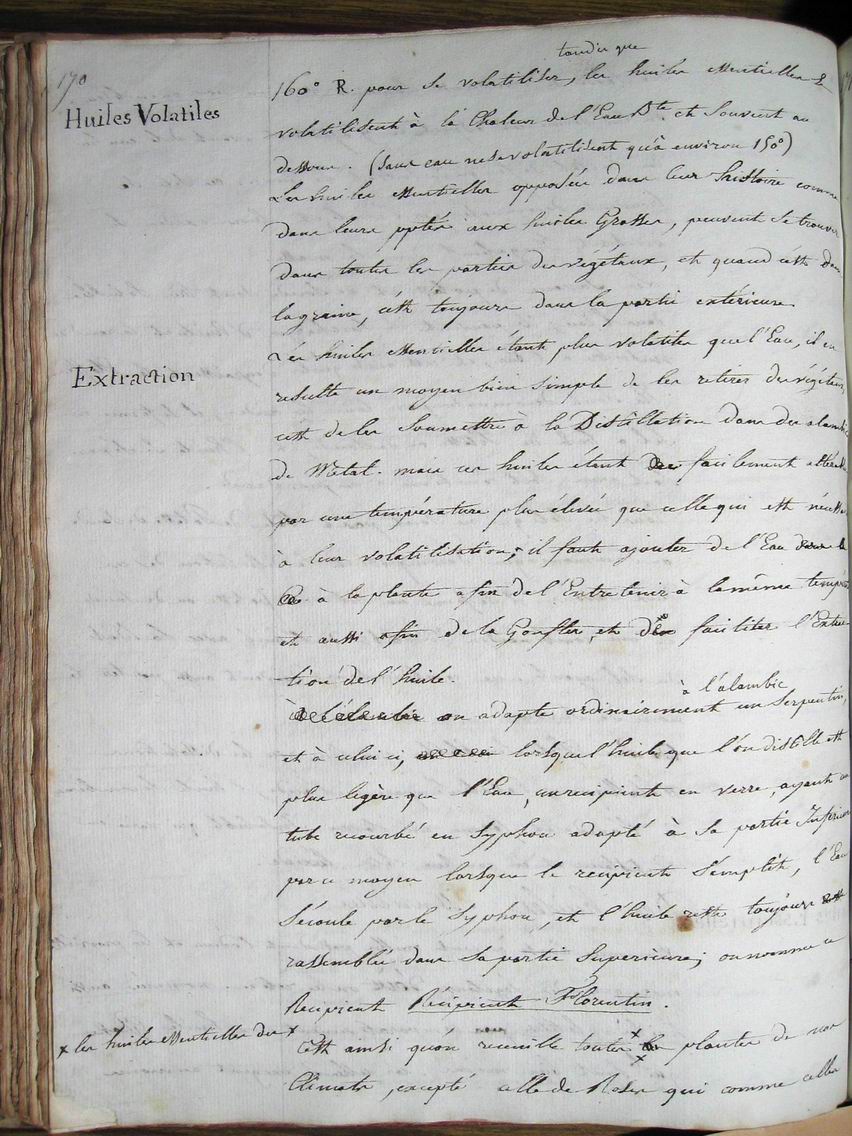 170
tandis que
160° R. pour se volatiliser, les huiles essentielles se
Huiles Volatiles
volatilisent à la Chaleur de l'Eau Bte. et souvent au
dessous. (sans eau ne se volatilisent qu'à environ 150°)
Les huiles essentielles opposées dans leur histoire comme
dans leurs pptés aux huiles Grasses, peuvent se trouver
dans toutes les parties des végétaux, et quand c'est dans
la graine, c'est toujours dans la partie extérieure.
Les huiles essentielles étant plus volatiles que l'Eau, il en
Extraction
resulte un moyen bien simple de les retirer des végétaux,
c'est de les soumettre à la Distillation dans des alambics
de Metal. mais ces huiles étant facilement altérées
par une température plus élevée que celle qui est nécess
à leur volatilisation, il faut ajouter de l'Eau
à la plante afin de l'Entretenir à la même tempér
et aussi afin de la Gonfler, et de faciliter l'Extrac
tion de l'huile.
à l'alambic
on adapte ordinairement un Serpentin,
et à celui ci, lorsque l'huile que l'on distille est
plus legère que l'Eau, un recipient en verre, ayant un
tube recourbé en Syphon adapté à sa partie Inférieure
par ce moyen lorsque le recipient s'emplit, l'Eau
s'écoule par le Syphon, et l'huile reste toujours
rassemblée dans sa partie Superieure; on nomme ce
Recipient Récipient Florentin.
x les huiles essentielles des x
C'est ainsi qu'on recueille toutes x plantes de nos
Climats, excepté celle de Roses qui comme celles